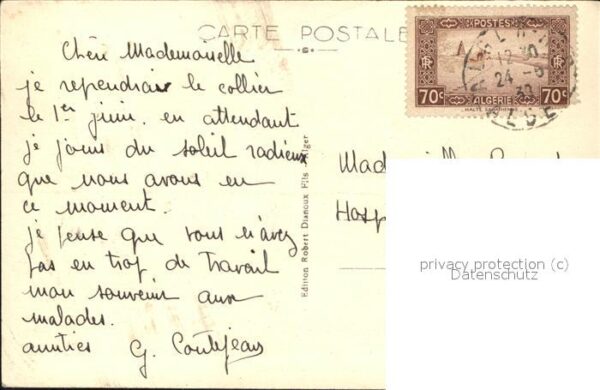 CARTE POSTALE
Chère Mademoiselle
je reprendrai le collier
le 1er juin. en attendant
je jouis du soleil radieux
que nous avons en
ce moment.
je pense que vous n'avez
pas en trop de travail
mon souvenir aux
malades.
amitiés G. Contejean
Edition Robert Dianoux Fils Alger
POSTES
RF
70c ALGERIE 70c
HALTE SAHARIENNE
24 -5
Hosp
privacy protection (c)
Datenschutz